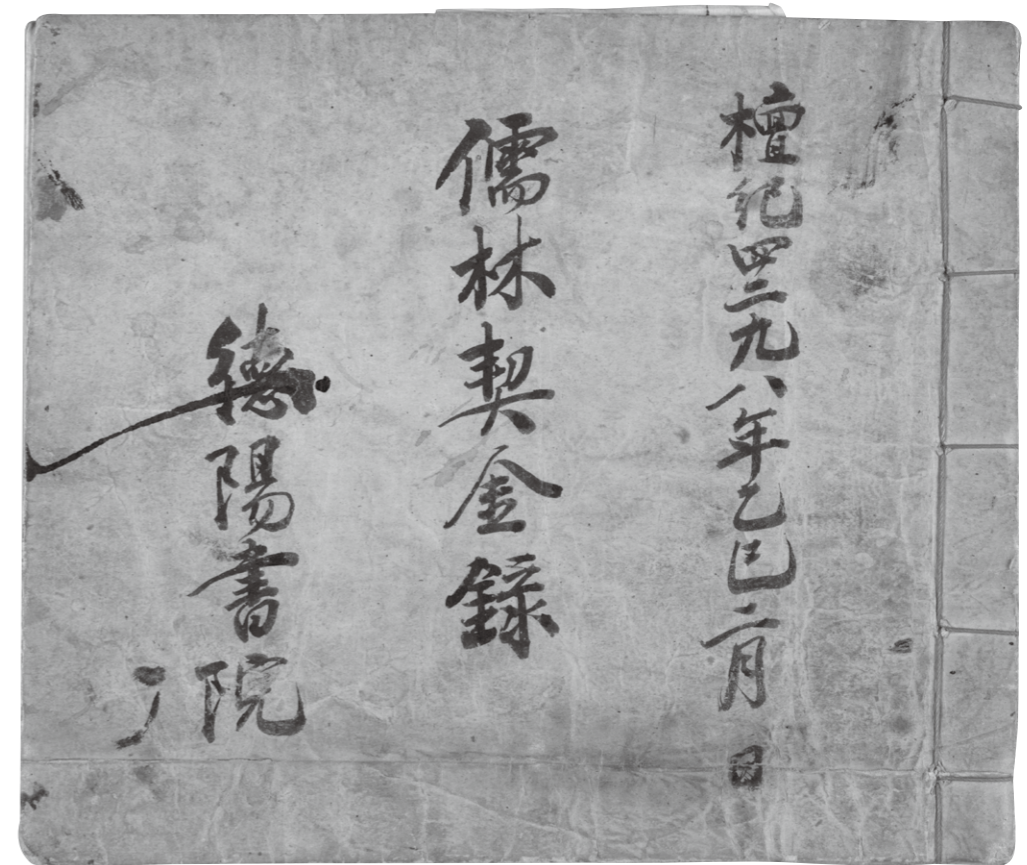 檀紀四二九八年乙巳二月 日
儒林契金錄
德陽書院